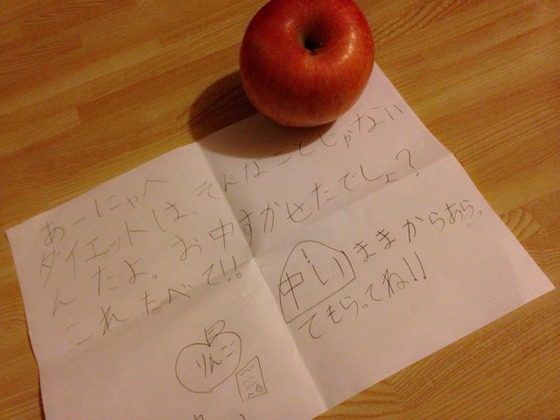 あーにゃへ
ダイエットは、そんなことじゃない
んだよ。お中すかせたでしょ?
これたべて!!
中い ままからあらっ
てもらってね!!
りんご